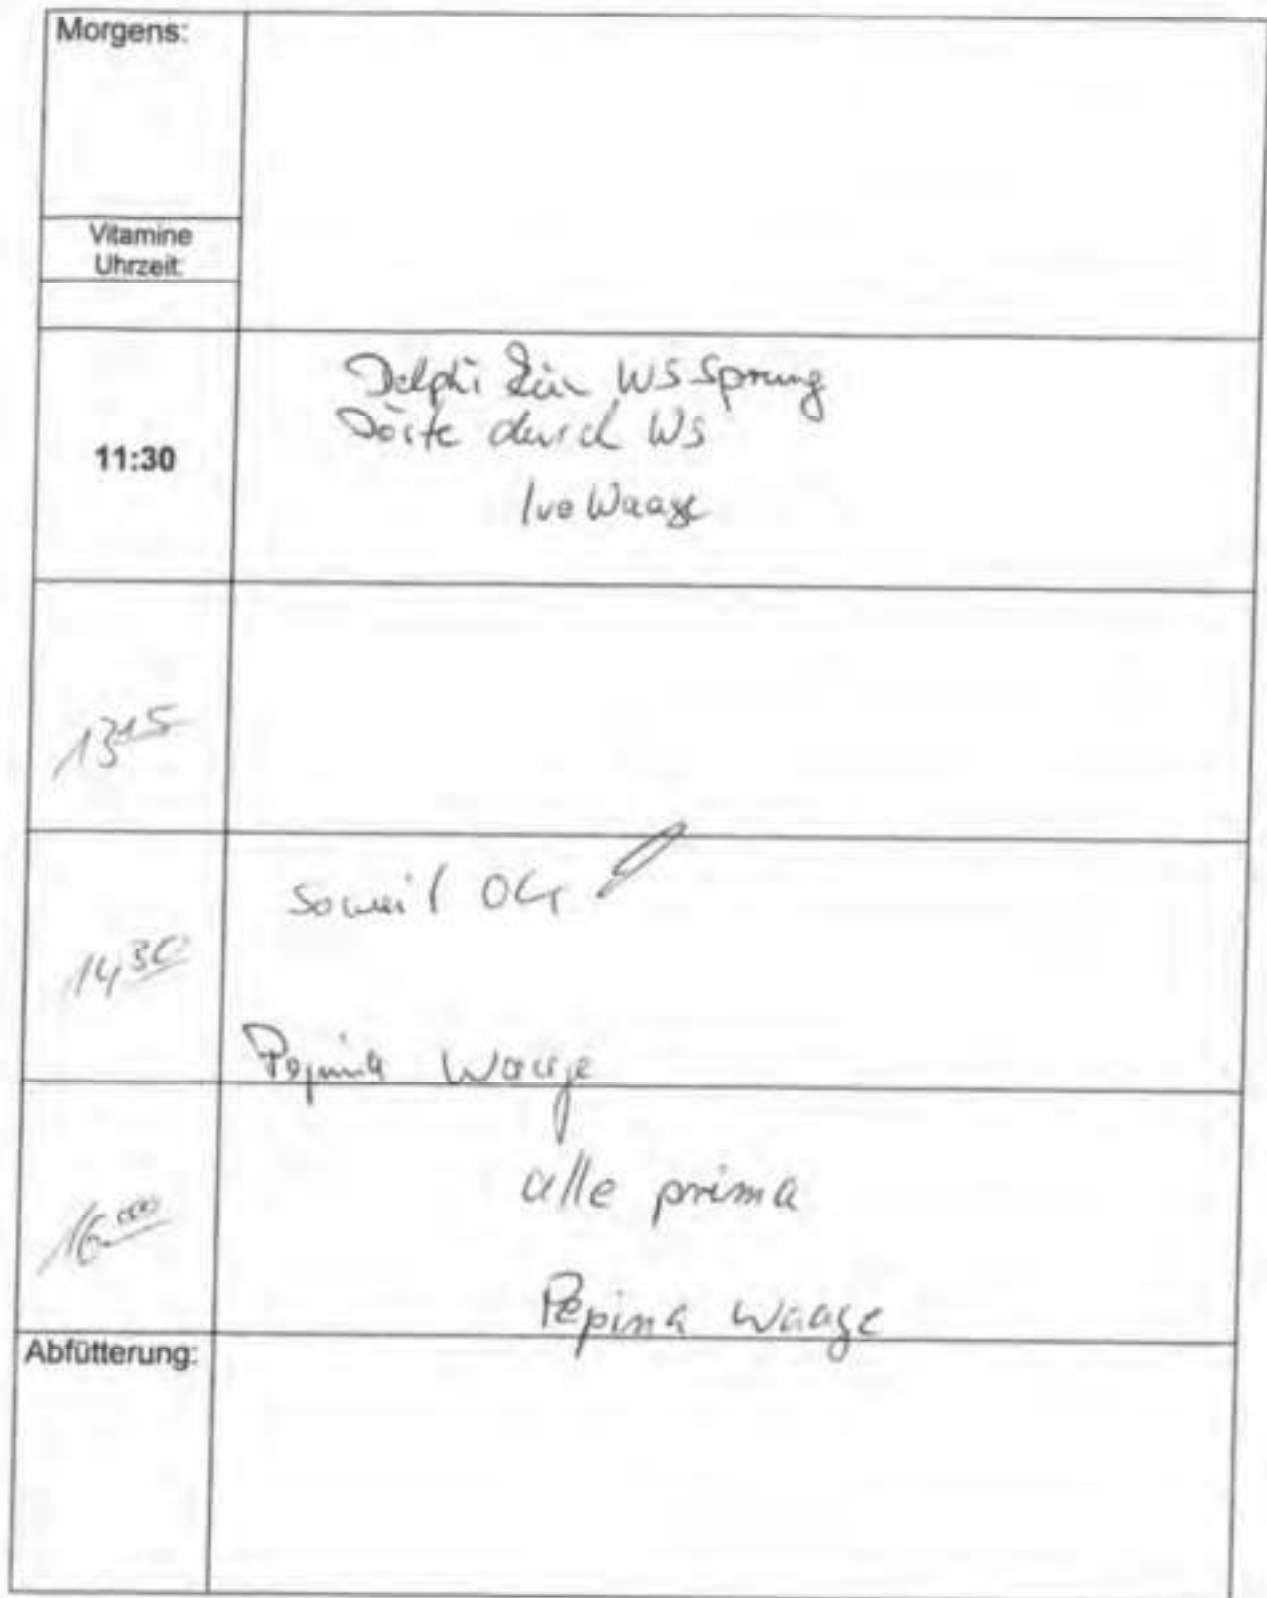 Morgens:
Vitamine
Uhrzeit:
11:30
Delphi kein WS-Sprung
Dörte durch WS
Ivo Waage
13 15
14 30
soweit OK
Pepina Waage
16.00
alle prima
Pepina Waage
Abfütterung: